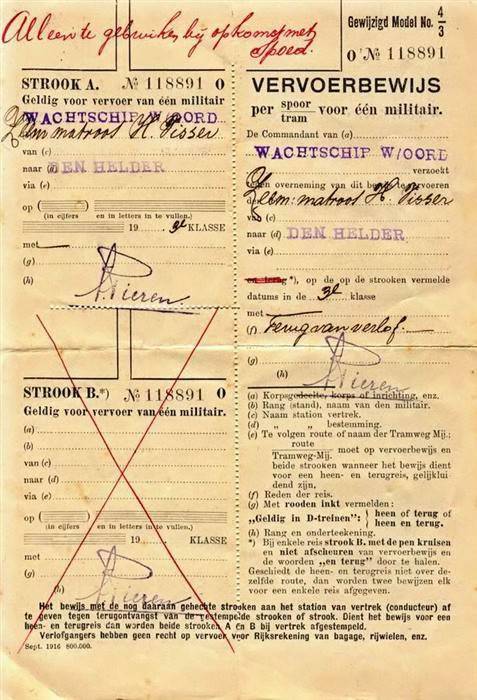 Alleen te gebruiken bij opkomst met
spoed.
Gewijzigd Model No. 4/3
O № 118891
STROOK A. № 118891 O
Geldig voor vervoer van één militair
WACHTSCHIP W/OORD
Zeem: matroos H. Visser
van (c)
naar (d) DEN HELDER
via (e)
op
(in cijfers en in letters in te vullen.)
19 3e KLASSE
met
(g)
(h) Pieren
VERVOERBEWIJS
per spoor/tram voor één militair.
De Commandant van (a)
WACHTSCHIP W/OORD
verzoekt
tegen overneming van dit bewijs te vervoeren
de Zeem: matroos H. Visser
van (c)
naar (d) DEN HELDER
via (e)
en terug *), op de op de strooken vermelde
datums in de 3e klasse
met
(f) Terug van verlof.
(g)
(h) Pieren
(a) Korpsgedeelte, korps of inrichting, enz.
(b) Rang (stand), naam van den militair.
(c) Naam station vertrek.
(d) „ „ bestemming.
(e) Te volgen route of naam der Tramweg Mij.;
route
Tramweg-Mij. moet op vervoerbewijs en
beide strooken wanneer het bewijs dient
voor een heen- en terugreis, gelijklui
dend zijn,
(f) Reden der reis.
(g) Met rooden inkt vermelden:
„Geldig in D-treinen": } heen of terug of
heen en terug.
(h) Rang en onderteekening.
*) Bij enkele reis strook B. met de pen kruisen
en niet afscheuren van vervoerbewijs en
de woorden „en terug" door te halen.
Geschiedt de heen- en terugreis niet over de-
zelfde route, dan worden twee bewijzen elk
voor een enkele reis afgegeven.
STROOK B.*) № 118891 O
Geldig voor vervoer van één militair.
(a)
(b)
van (c)
naar (d)
via (e)
op
(in cijfers en in letters in te vullen.)
19 KLASSE
met
(g)
(h) Pieren
Het bewijs met de nog daaraan gehechte strooken aan het station van vertrek (conducteur) af
te geven tegen terugontvangst van de gestempelde strooken of strook. Dient het bewijs voor een
heen- en terugreis dan worden beide strooken A en B bij vertrek afgestempeld.
Verlofgangers hebben geen recht op vervoer voor Rijksrekening van bagage, rijwielen, enz.
Sept. 1916 800.000.